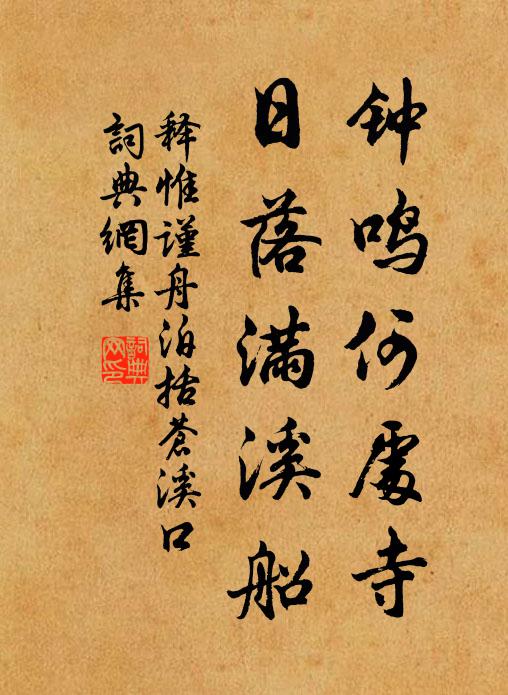 钟鸣何處寺
日落满溪船
释惟谨舟泊括蒼溪口
詞典網集
詞典网印